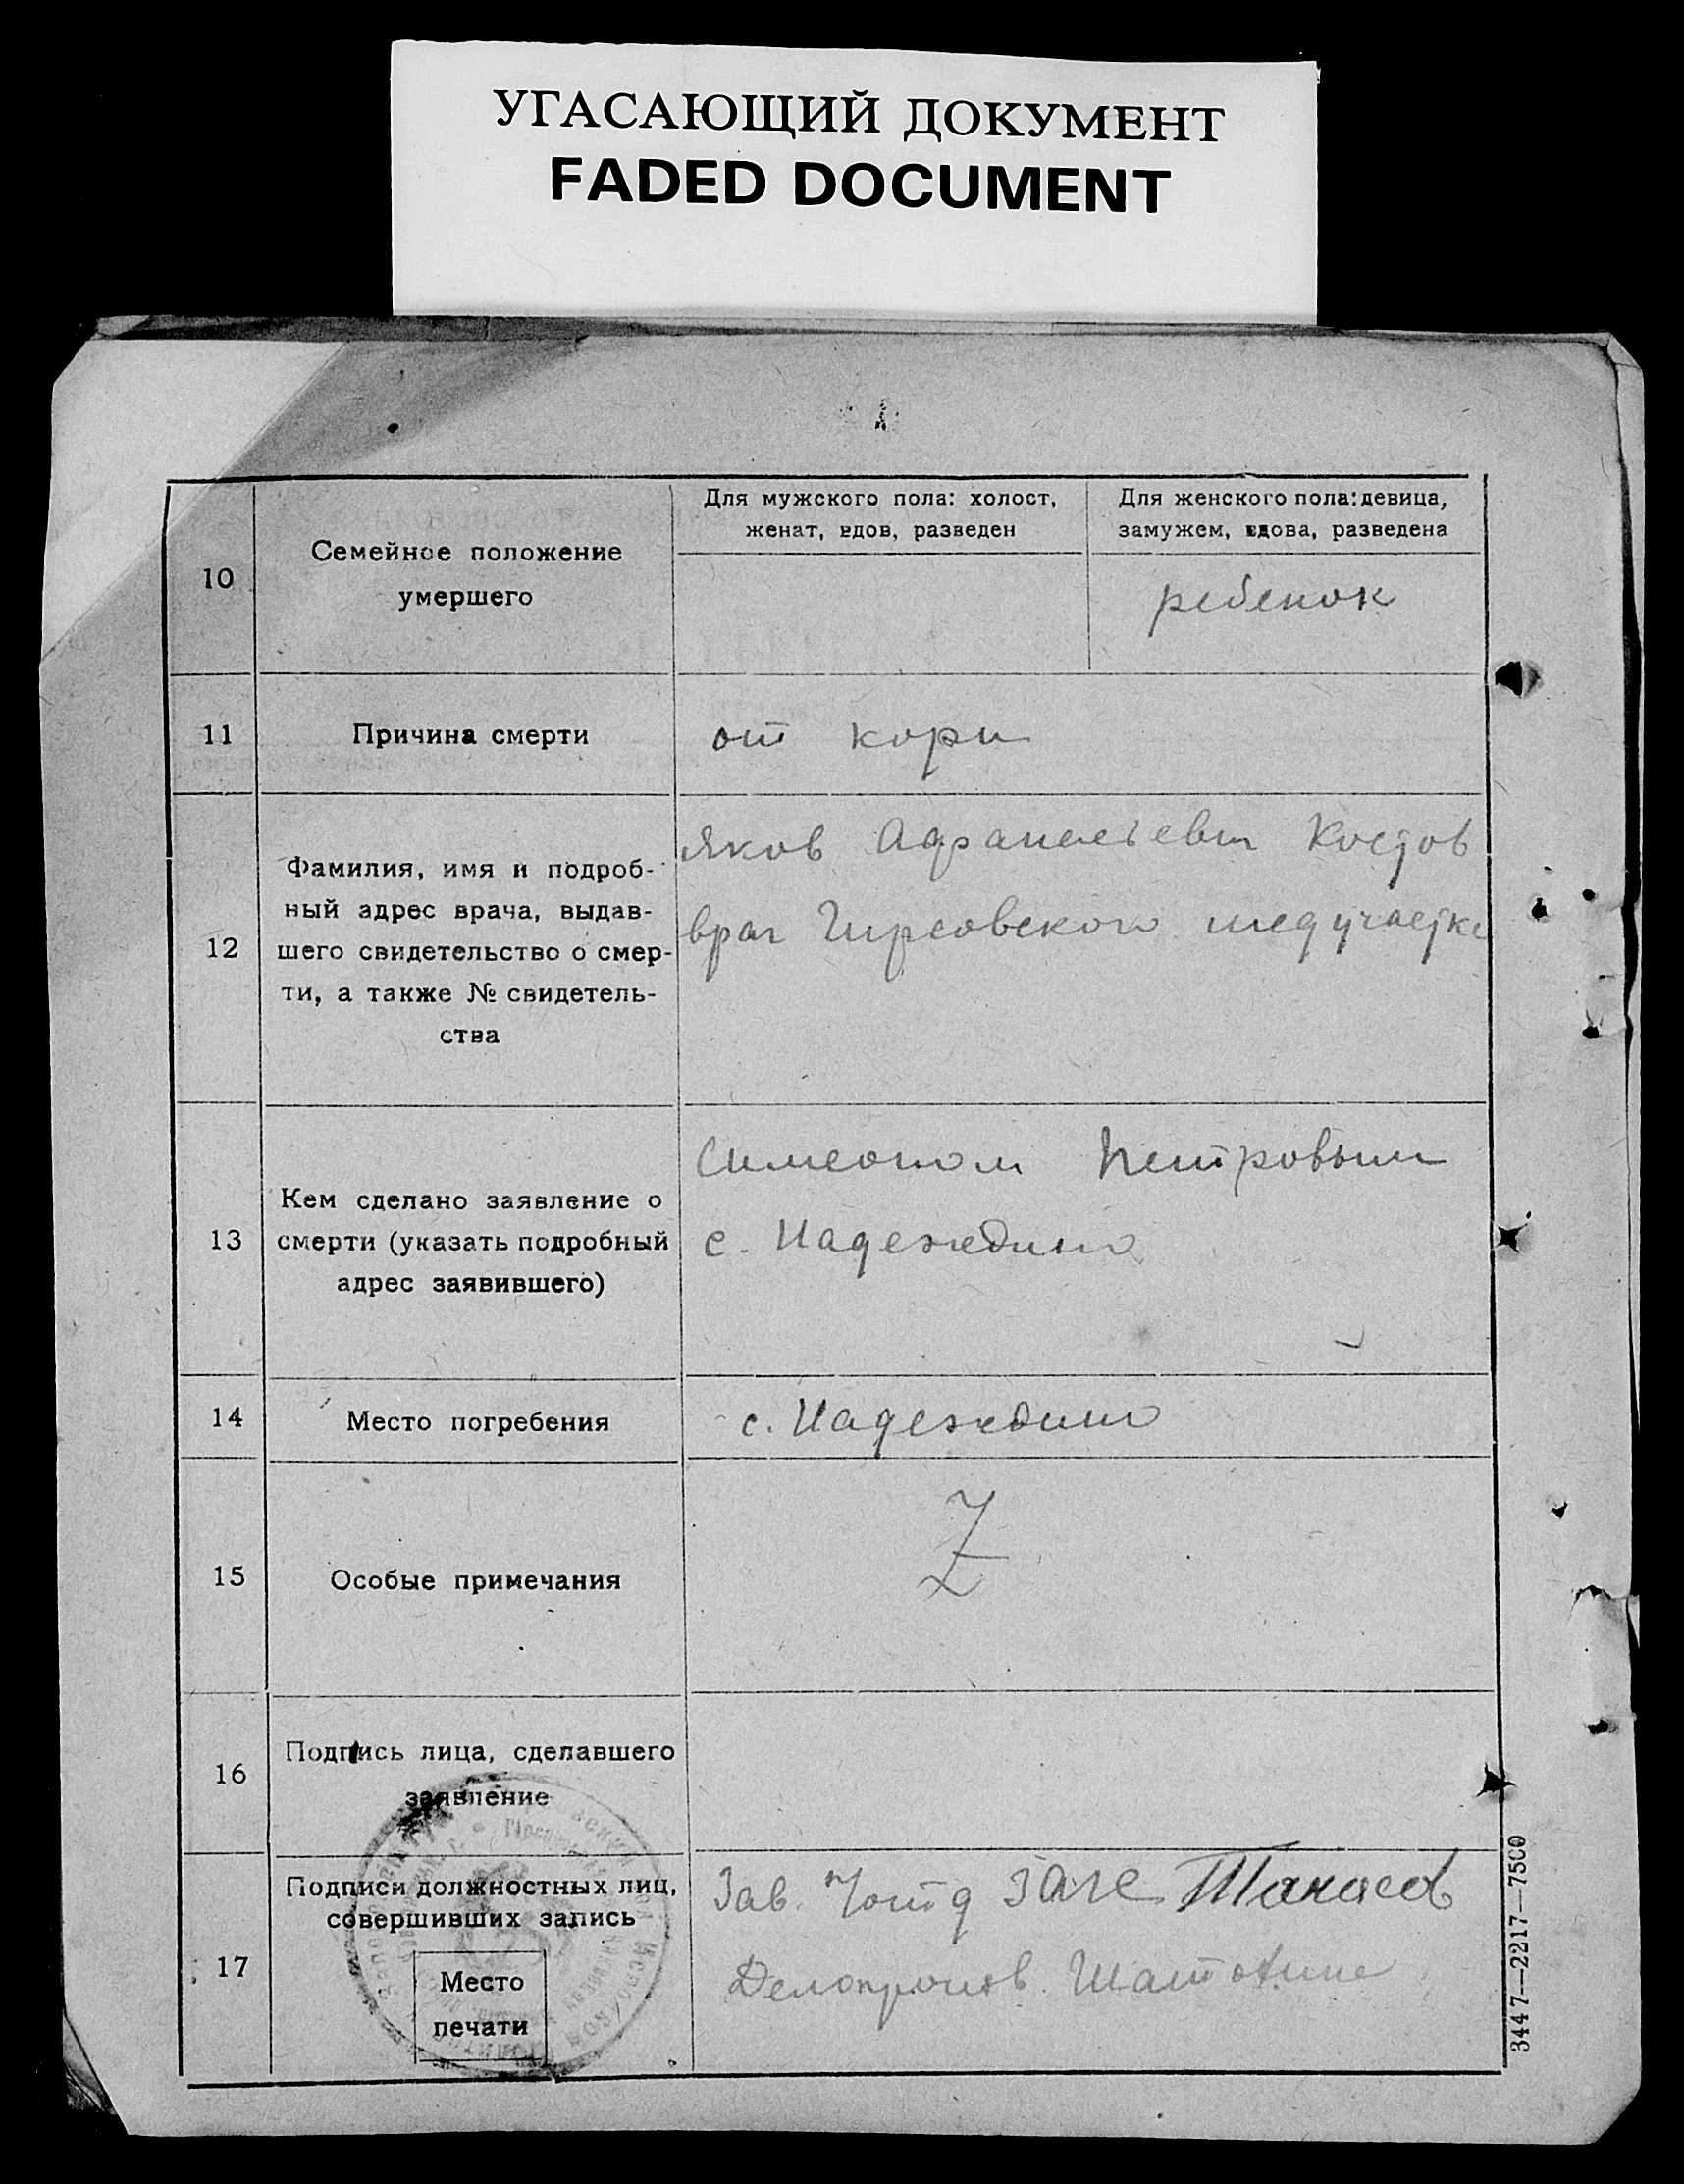 УГАСАЮЩИЙ ДОКУМЕНТ
FADED DOCUMENT
10
Семейное положение
умершего
Для мужского пола: холост,
женат, вдов, разведен
Для женского пола: девица,
замужем, вдова, разведена
ребенок
11
Причина смерти
от кори
12
Фамилия, имя и подроб-
ный адрес врача, выдав-
шего свидетельство о смер-
ти, а также № свидетель-
ства
Яков Костов
врач Гирсовского медучастка
13
Кем сделано заявление о
смерти (указать подробный
адрес заявившего)
Симеоном Петровым
с. Надеждино
14
Место погребения
с. Надеждино
15
Особые примечания
Z
16
Подпись лица, сделавшего
заявление
17
Подписи должностных лиц,
совершивших запись
Место
печати
Зав. загс Танасов
Делопроизв.
3447—2217—7500